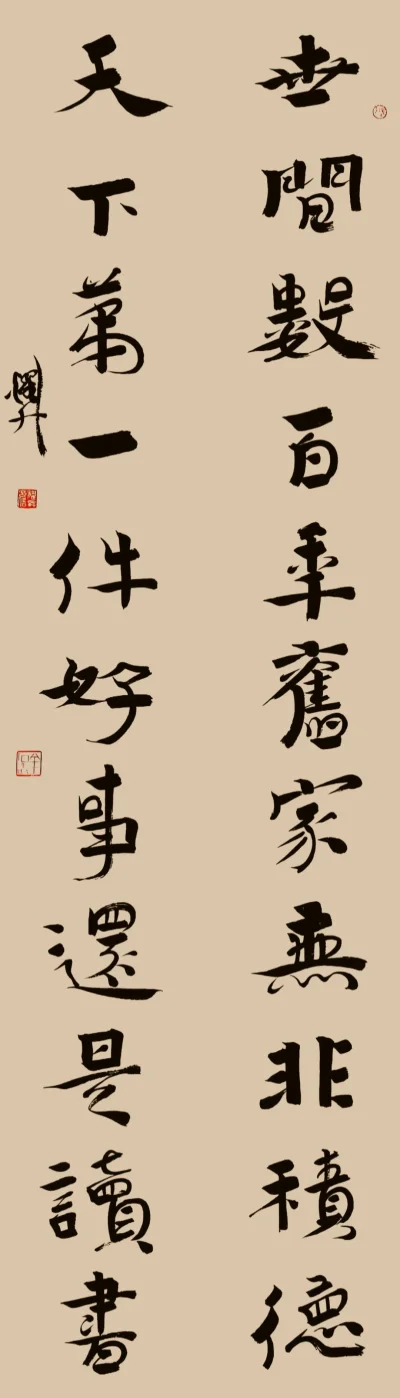 世間數百年舊家無非積德
天下第一件好事還是讀書